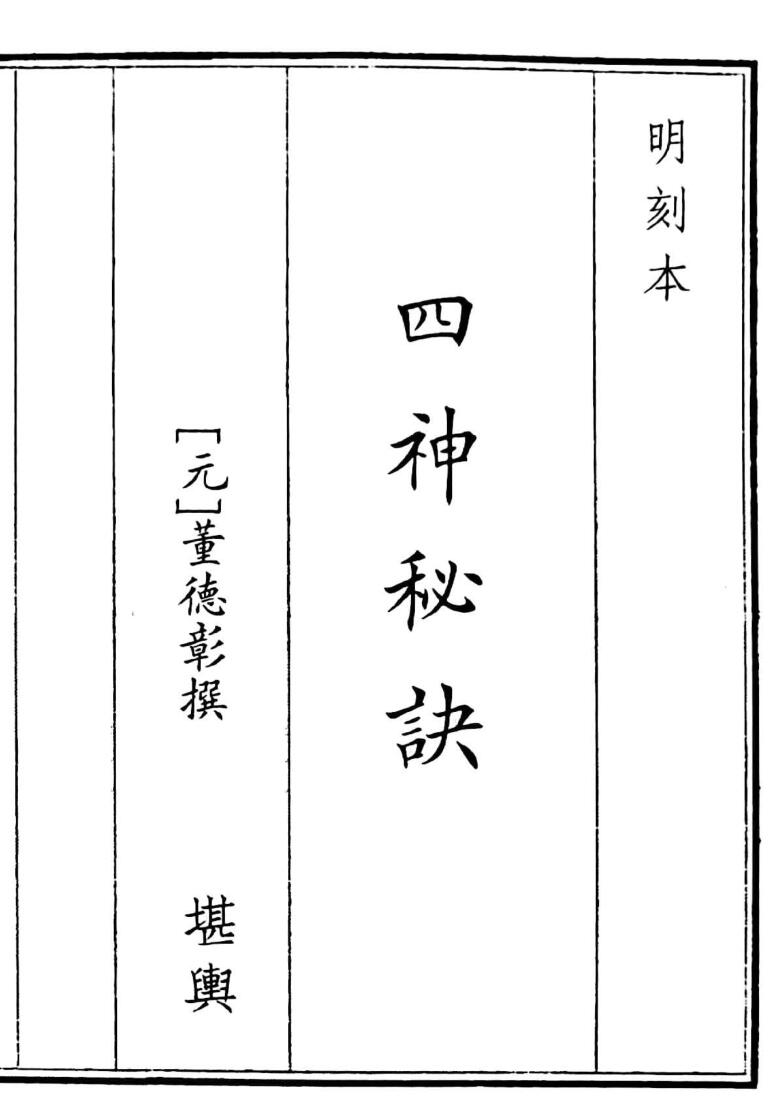 明刻本
四神秘訣
[元]董德彰撰
堪輿